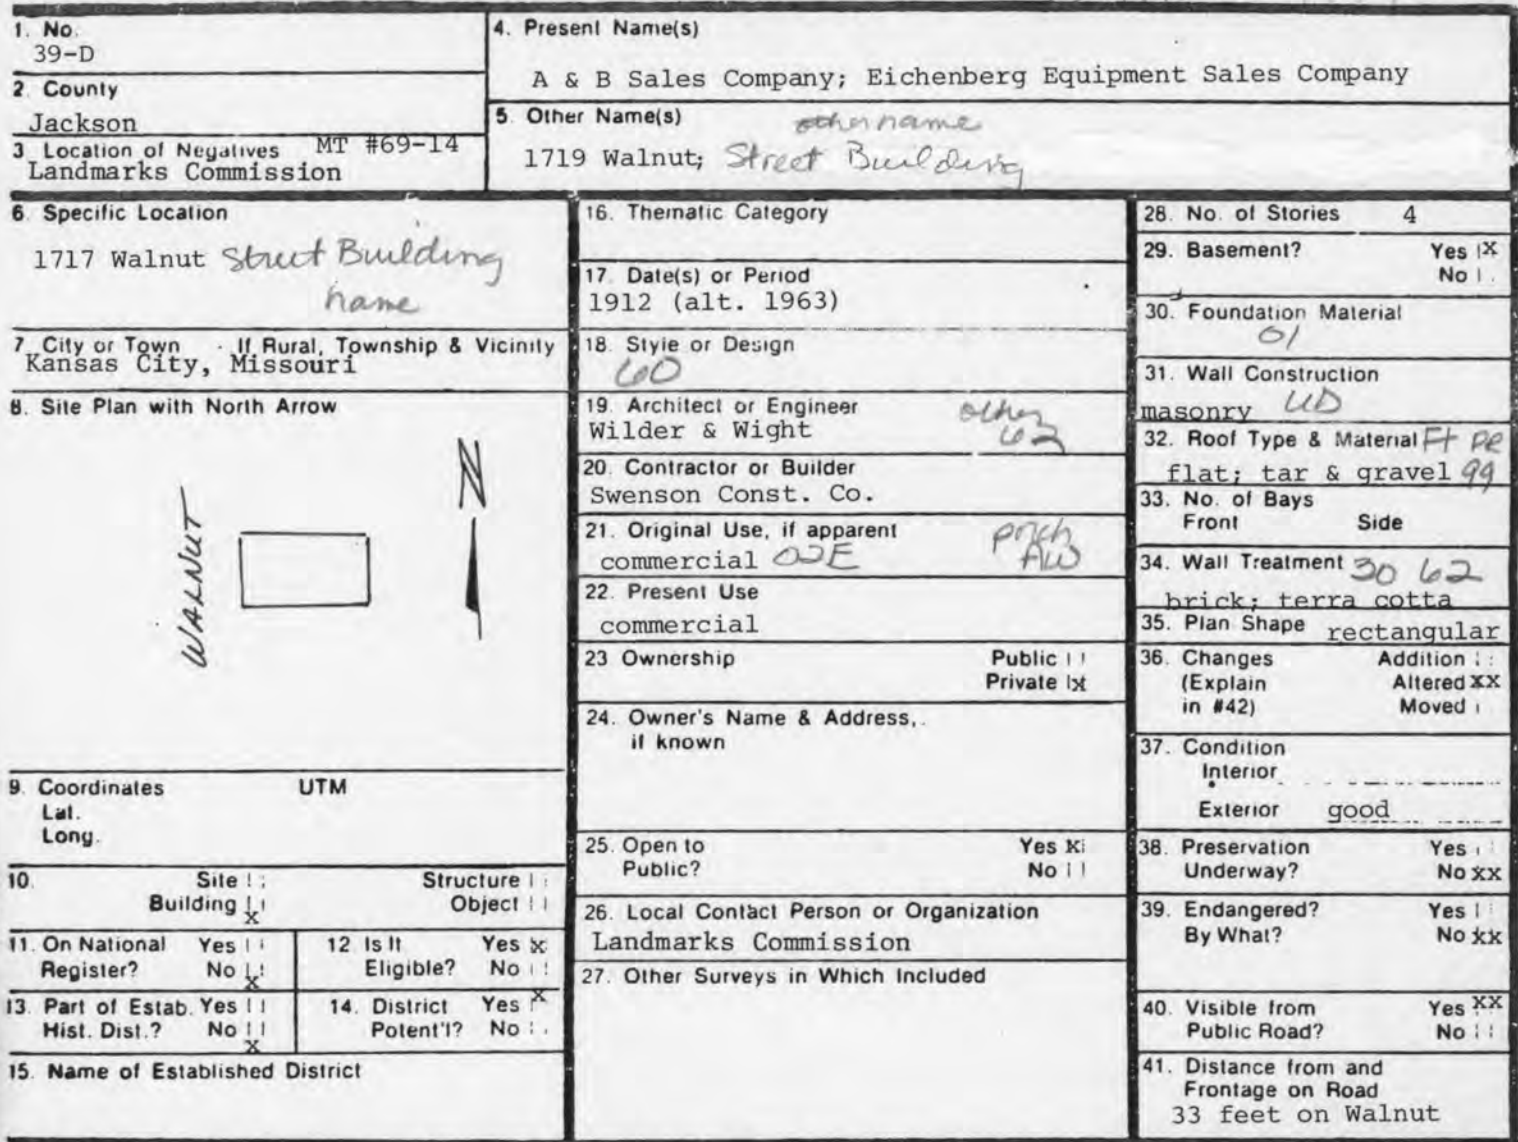 1. No.
39-D
2. County
Jackson
3 Location of Negatives MT #69-14
Landmarks Commission
4. Present Name(s)
A & B Sales Company; Eichenberg Equipment Sales Company
5. Other Name(s) other name
1719 Walnut; Street Building
6. Specific Location
1717 Walnut Street Building
name
7 City or Town If Rural, Township & Vicinity
Kansas City, Missouri
8. Site Plan with North Arrow
N
WALNUT
9. Coordinates UTM
Lat.
Long.
10. Site Structure
Building X Object
11. On National Yes
Register? No X
12 Is It Yes X
Eligible? No
13. Part of Estab. Yes
Hist. Dist.? No X
14. District Yes X
Potent'l? No
15. Name of Established District
16. Thematic Category
17. Date(s) or Period
1912 (alt. 1963)
18. Style or Design
60
19. Architect or Engineer other
Wilder & Wight 62
20. Contractor or Builder
Swenson Const. Co.
21. Original Use, if apparent porch
commercial 02E AW
22. Present Use
commercial
23 Ownership Public
Private X
24. Owner's Name & Address,
if known
25. Open to Yes X
Public? No
26. Local Contact Person or Organization
Landmarks Commission
27. Other Surveys in Which Included
28. No. of Stories 4
29. Basement? Yes X
No
30. Foundation Material
01
31. Wall Construction
masonry UD
32. Roof Type & Material Ft PR
flat; tar & gravel 99
33. No. of Bays
Front Side
34. Wall Treatment 30 62
brick; terra cotta
35. Plan Shape rectangular
36. Changes Addition
(Explain Altered XX
in #42) Moved
37. Condition
Interior
Exterior good
38. Preservation Yes
Underway? No XX
39. Endangered? Yes
By What? No XX
40. Visible from Yes XX
Public Road? No
41. Distance from and
Frontage on Road
33 feet on Walnut